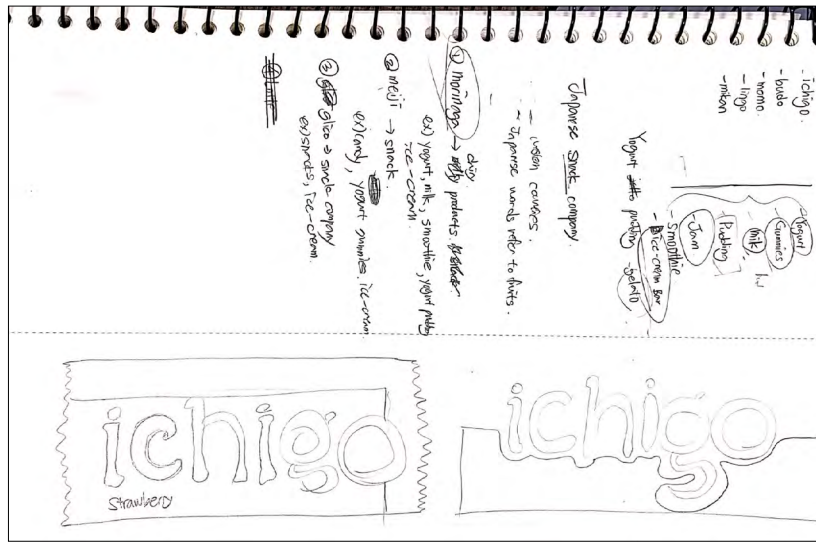 - ichigo.
- budo
- momo.
- lingo
- mikan
- Yogurt
- Gummies
- Milk,
- Pudding
- Jam
- Smoothie
- ice-cream Bar
- gelato
Yogurt pudding
Japanese snack company.
- Japanese words refer to fruits.
① morinaga → dairy products
ex) yogurt, milk, smoothie, yogurt pudding
ice-cream
② meiji → snack.
ex) candy, yogurt gummies, ice-cream.
③ glico → snack company
ex) snacks, ice-cream.
ichigo
strawberry
ichigo